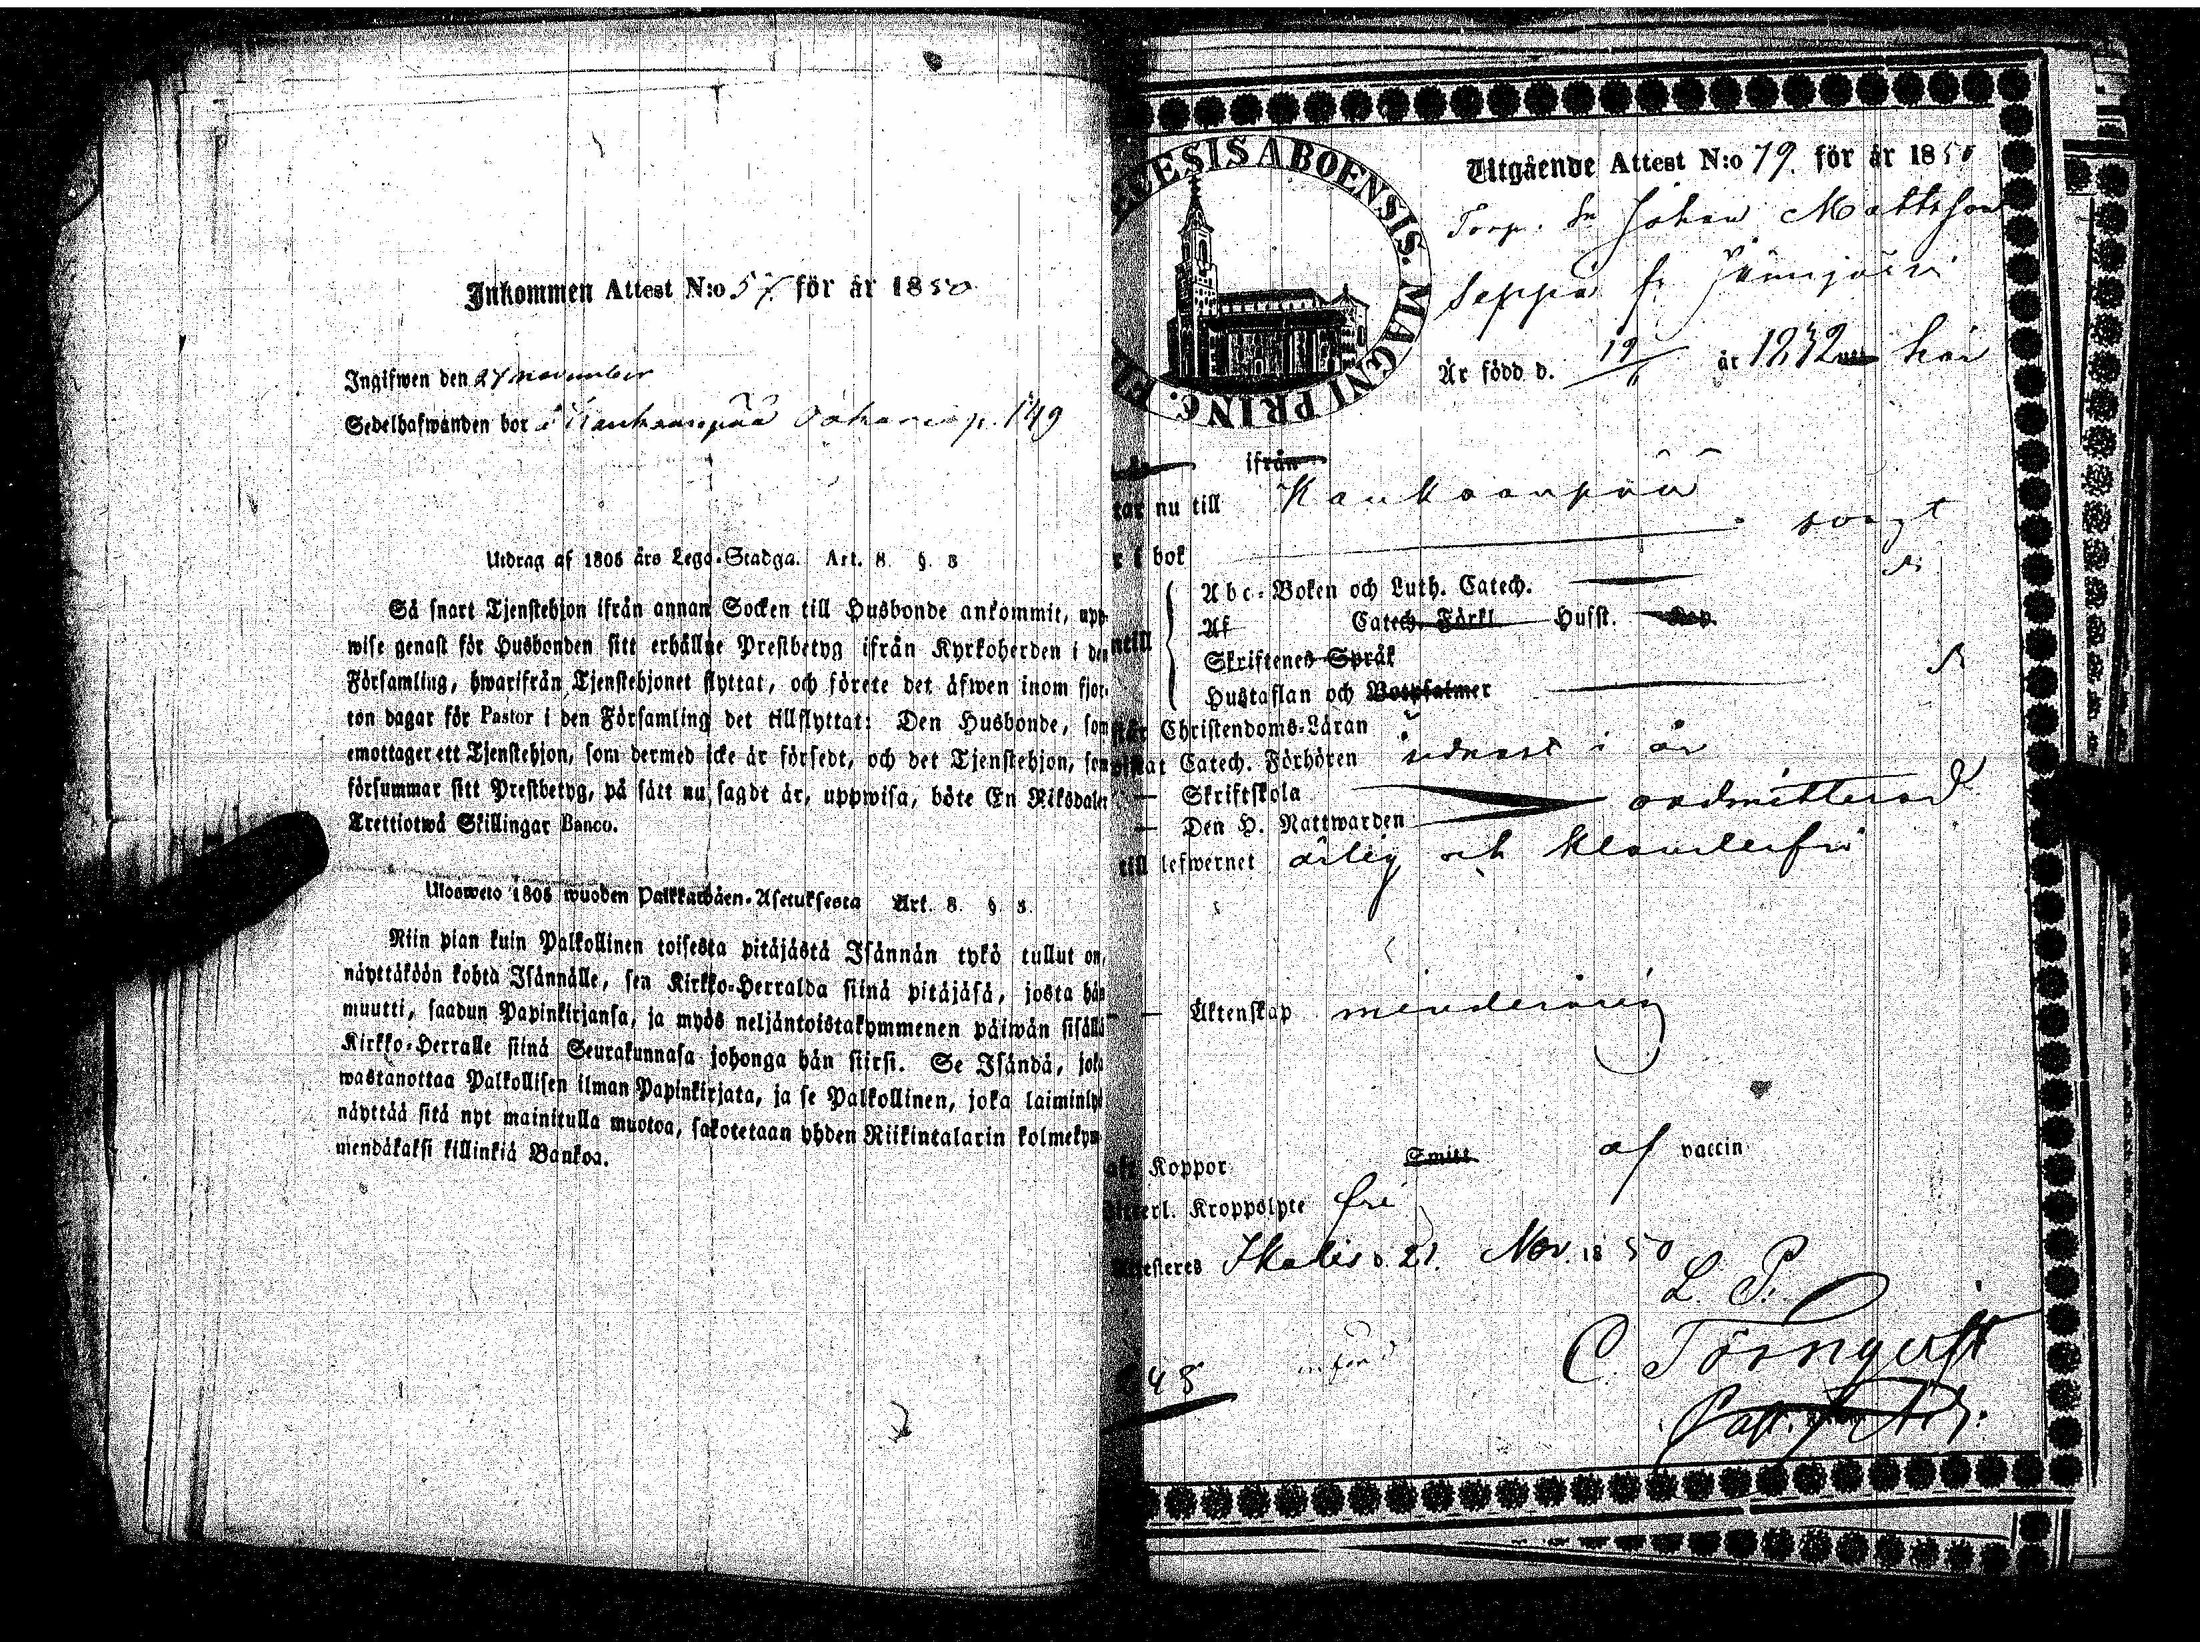 Inkommen Attest N:o 57. för år 1850
Ingifwen den 27 november
Sedelhafwanden bor i Kankaanpää
149
Utdrag af 1805 års Lego-Stadga. Art. 8. §. 3
Så snart Tjenstehjon ifrån annan Socken till Husbonde ankommit, upp-
wise genast för Husbonden sitt erhållne Prestbetyg ifrån Kyrkoherden i den
Församling, hwarifrån Tjenstehjonet flyttat, och förete det äfwen inom fjor-
ton dagar för Pastor i den Församling det tillflyttat: Den Husbonde, som
emottager ett Tjenstehjon, som dermed icke är försedt, och det Tjenstehjon, som
försummar sitt Prestbetyg, på sätt nu sagdt är, uppwisa, böte En Riksdaler
Trettiotwå Skillingar Banco.
Ulosweto 1805 wuoden Palkkawäen-Asetuksesta Art. 8. §. 3.
Niin pian kuin Palkollinen toisesta pitäjästä Isännän tykö tullut on,
näyttäköön kohta Isännälle, sen Kirkko-Herralda siinä pitäjäsä, josta hän
muutti, saadun Papinkirjansa, ja myös neljäntoistakymmenen päiwän sisällä
Kirkko-Herralle siinä Seurakunnasa johonga hän siirsi. Se Isändä, joka
wastanottaa Palkollisen ilman Papinkirjata, ja se Palkollinen, joka laiminlyö
näyttää sitä nyt mainitulla muotoa, sakotetaan yhden Riikintalarin kolmekym-
mendäkaksi killinkiä Bankoa.
ECESIS ABOENSIS. MAGNI PRINC. FI
Utgående Attest N:o 79. för år 1850
Torp. Sn Johan Mattsson
Seppä fr. Jämijärvi
Är född d. 19/ år 1832 här
ifrån
tar nu till Kankaanpää
r i bok svagt
Abc-Boken och Luth. Catech.
Af Catech. Förkl Husst.
ntill
Skriftenes Språk
Hustaflan och Botpsalmer
står Christendoms-Läran
wistat Catech. Förhören sednast i år
— Skriftskola
oadmitterad
— Den H. Nattwarden
till lefwernet ärlig och klanderfri
— Äktenskap minderårig
aft Koppor Smitt af vaccin
itterl. Kroppslyte fri
Attesteres Ikalis d. 21. Nov. 1850
L. P.
C. Törnqvist
48